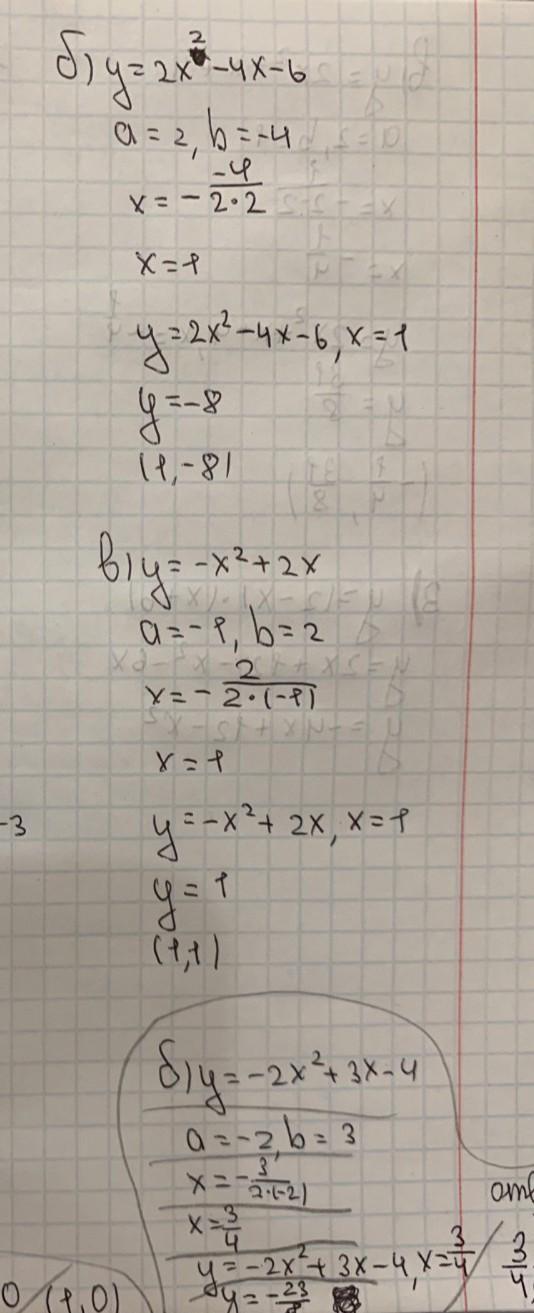 б) y = 2x² - 4x - 6
a = 2, b = -4
x = - -4/2·2
x = 1
y = 2x² - 4x - 6, x = 1
y = -8
(1, -8)
в) y = -x² + 2x
a = -1, b = 2
x = - 2/2·(-1)
x = 1
-3
y = -x² + 2x, x = 1
y = 1
(1,1)
б) y = -2x² + 3x - 4
a = -2, b = 3
x = - 3/2·(-2)
x = 3/4
y = -2x² + 3x - 4, x = 3/4
y = -23/8
0 (1,0)
отв
3/4,